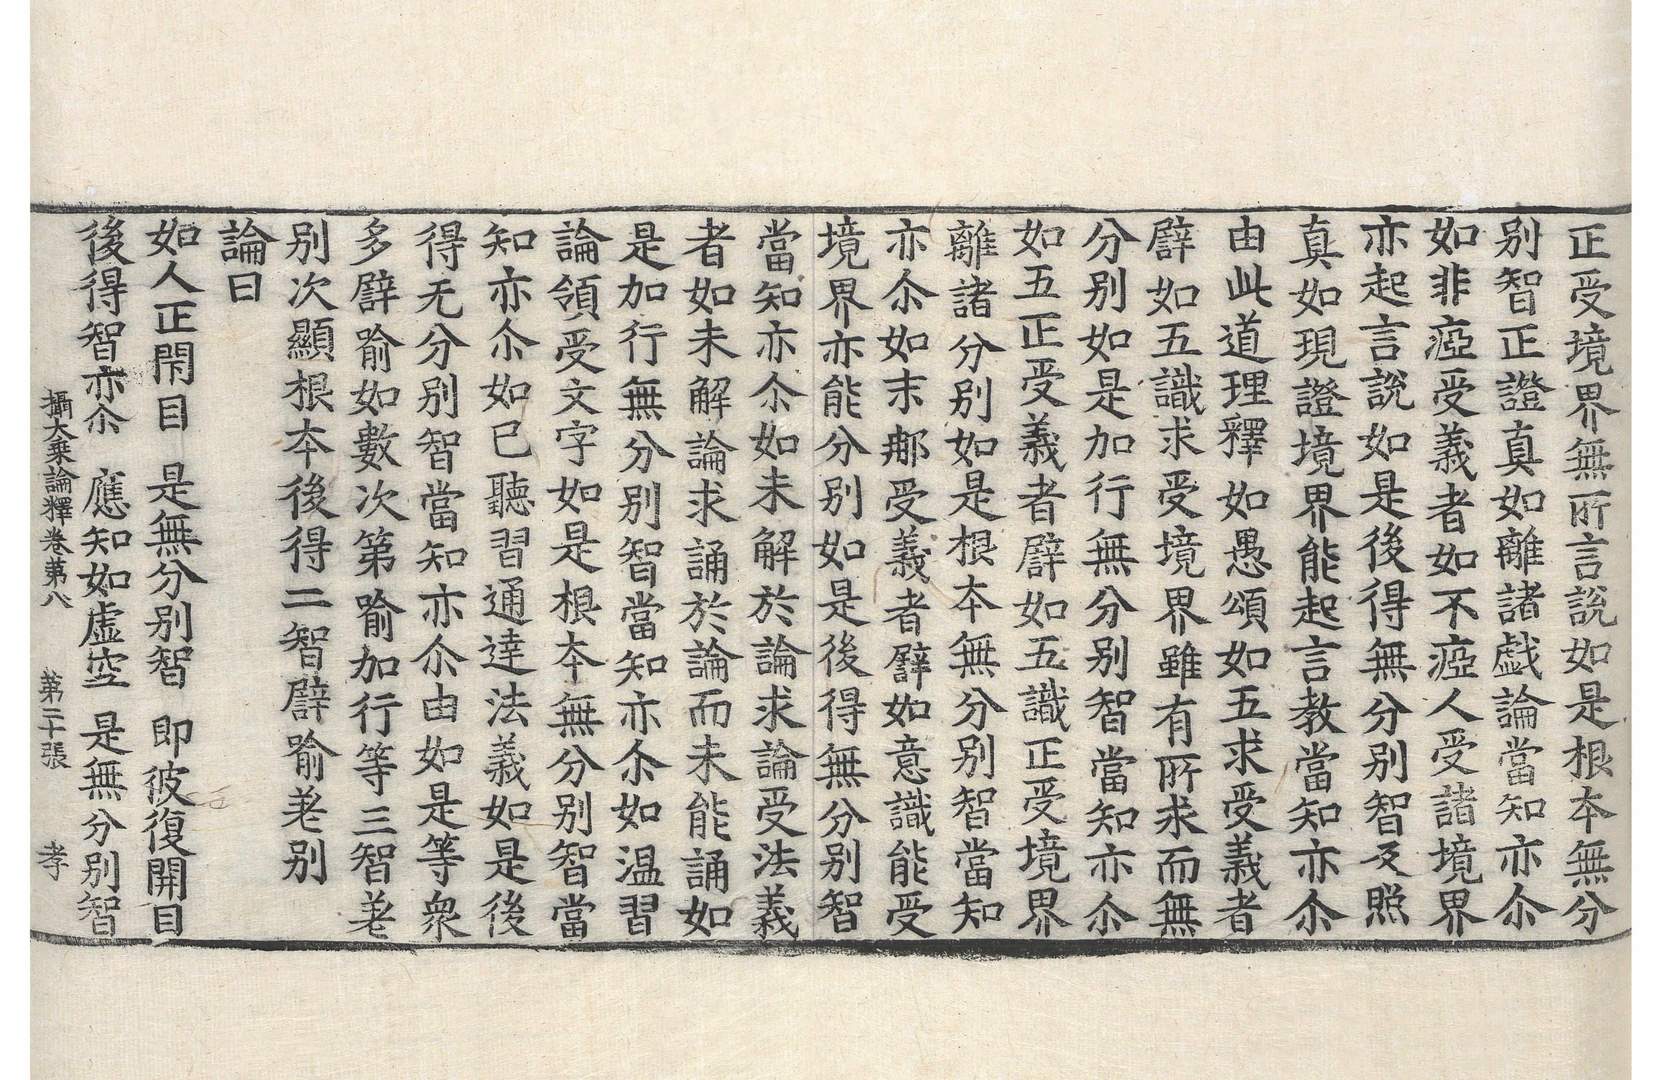 正受境界無所言說如是根本無分
別智正證真如離諸戲論當知亦尒
如非瘂受義者如不瘂人受諸境界
亦起言說如是後得無分別智反照
真如現證境界能起言教當知亦尒
由此道理釋如愚頌如五求受義者
譬如五識求受境界雖有所求而無
分別如是加行無分別智當知亦尒
如五正受義者譬如五識正受境界
離諸分別如是根本無分別智當知
亦尒如末那受義者譬如意識能受
境界亦能分別如是後得無分別智
當知亦尒如未解於論求論受法義
者如未解論求誦於論而未能誦如
是加行無分別智當知亦尒如温習
論領受文字如是根本無分別智當
知亦尒如已聽習通達法義如是後
得无分別智當知亦尒由如是等衆
多譬喻如數次第喻加行等三智差
別次顯根本後得二智譬喻差別
論曰
如人正閇目　是無分別智　即彼復開目
後得智亦尒　應知如虛空　是無分別智
攝大乘論釋卷第八　第二十張　孝